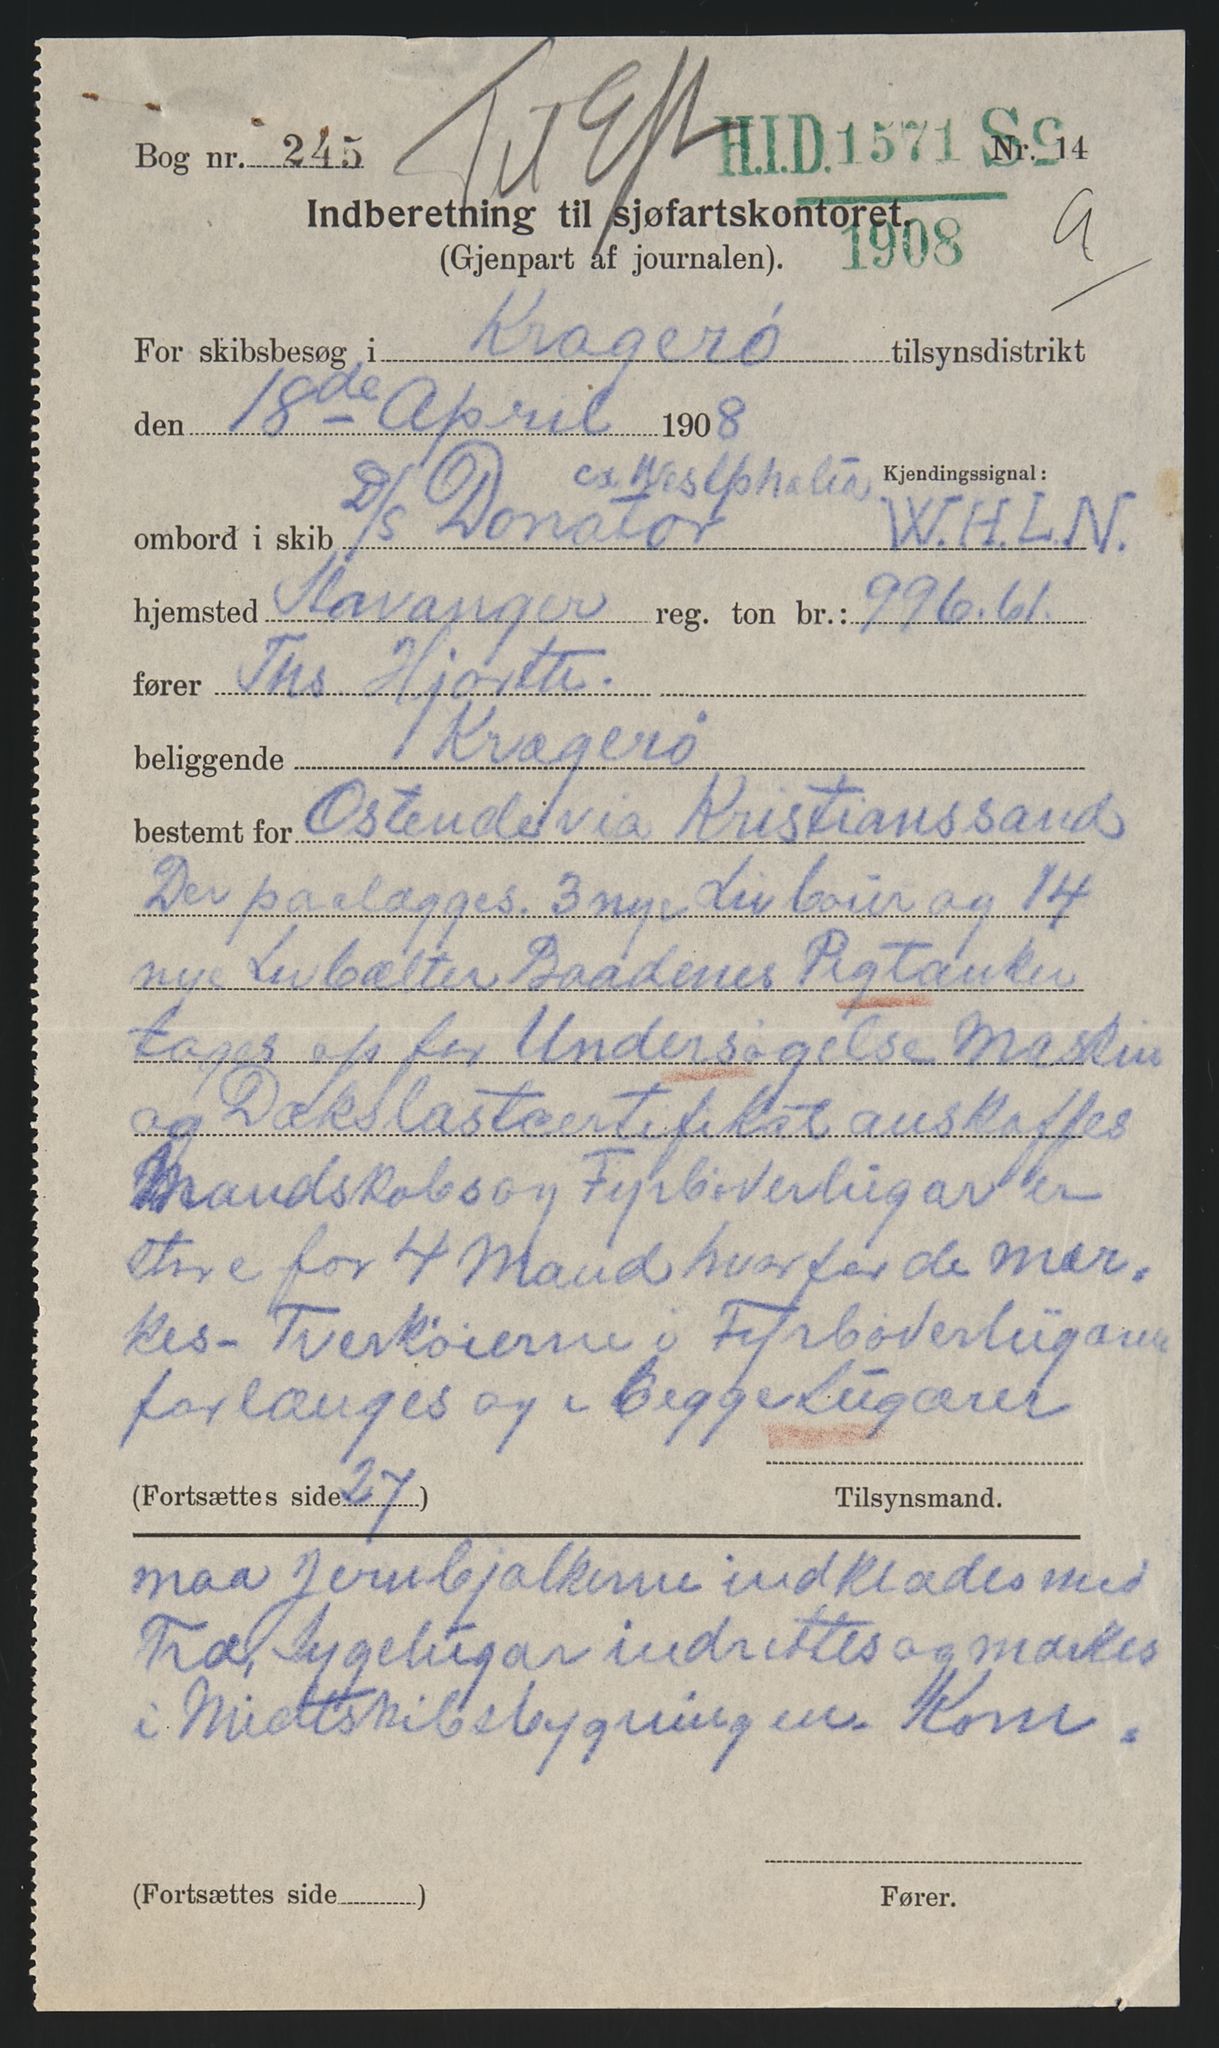 Til Eft
H.I.D. 1571 Sc
1908
Bog nr. 245
Nr. 14
a
Indberetning til sjøfartskontoret.
(Gjenpart af journalen).
For skibsbesøg i Kragerö tilsynsdistrikt
den 18de April 1908
ex Westphalia Kjendingssignal:
ombord i skib D/S Donator W.H.L.N.
hjemsted Stavanger reg. ton br.: 996.61.
fører Ths Hjortte.
beliggende Kragerö
bestemt for Ostende via Kristianssand
Der paalægges. 3 nye Livböier og 14
nye Livbælter Baadenes Pigtanker
tages op for Undersögelse Maskin
og Dækslastcertifikat anskaffes
Mandskabs og Fyrböderlugar er
store for 4 Mand hvorfor de mær-
kes- Tverköierne i Fyrböderlugaren
forlænges og i begge Lugarer
(Fortsættes side 27)
Tilsynsmand.
maa Jernbjælkerne indklædes med
Træ, Sygelugar indrettes og mærkes
i Midtskibsbygningen. Kom.
(Fortsættes side )
Fører.